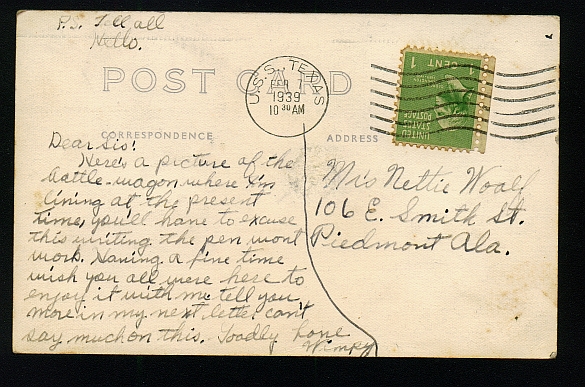 P.S. Tell all
Hello.
POST CARD
U.S.S. TEXAS
1
1939
10 30 AM
1 CENT 1
UNITED
STATES
POSTAGE
CORRESPONDENCE
ADDRESS
Dear Sis:
Here's a picture of the
battle-wagon where I'm
living at the present
time, you'll have to excuse
this writing the pen wont
work. Having a fine time
wish you all were here to
enjoy it with me tell you
more in my next letter can't
say much on this. Toodly
Love
Wimpy
Mis Nettie
106 E. Smith St.
Piedmont Ala.